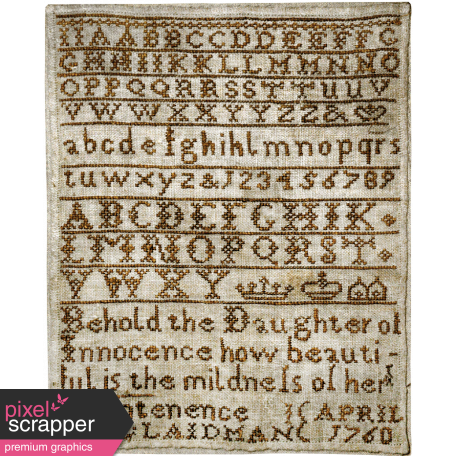 AABBCCDDEEFFG
GHHIIKKLLMMNNO
OPPQQRRSSTTUUV
VWWXXYYZZ&
abcdefghiklmnopqrs
tuwxyz&123456789
ABCDEFGHIK
LMNOPQRST
VWXY
Behold the Daughter of
Innocence how beauti-
ful is the mildness of her
tenence APRIL
LAIDMAN 1760
pixel
scrapper
premium graphics